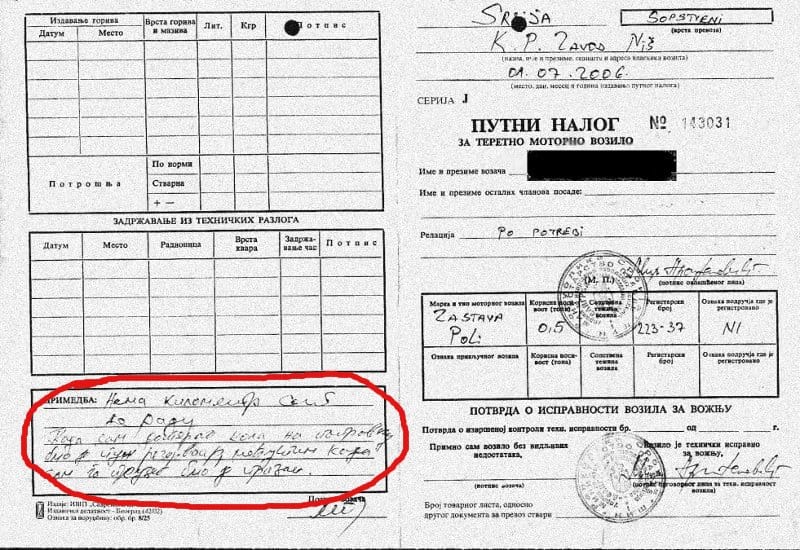 Издавање горива
Врста горива и мазива
Лит.
Кгр
Потпис
Датум
Место
Потрошња
По норми
Стварна
+ —
ЗАДРЖАВАЊЕ ИЗ ТЕХНИЧКИХ РАЗЛОГА
Датум
Место
Радионица
Врста квара
Задржавање час
Потпис
ПРИМЕДБА: Нема километар сат
да ради
Када сам
кола на
сам
Потпис возача
Издавачка делатност - Београд (4202)
Ознака за поруџбину: обр. бр. 8/25
Srbija
SOPSTVENI
(врста превоза)
K.P. Zavod Niš
(назив, име и презиме, седиште и адреса власника возила)
01.07.2006.
(место, дан, месец и година издавања путног налога)
СЕРИЈА Ј
ПУТНИ НАЛОГ № 143031
ЗА ТЕРЕТНО МОТОРНО ВОЗИЛО
Име и презиме возача
Име и презиме осталих чланова посаде:
Релација PO POTREBI
(М. П.)
(потпис овлашћеног лица)
Марка и тип моторног возила
Корисна носивост (тона)
Сопствена тежина возила
Регистарски број
Ознака подручја где је регистровано
ZASTAVA
POLI
0,5
223-37
NI
Ознака прикључног возила
Корисна носивост (тона)
Сопствена тежина возила
Регистарски број
Ознака подручја где је регистровано
ПОТВРДА О ИСПРАВНОСТИ ВОЗИЛА ЗА ВОЖЊУ
Потврда о извршеној контроли техн. исправности бр. од г.
Примио сам возило без видљивих недостатака,
Возило је технички исправно за вожњу,
(потпис возача)
(потпис одговорног лица за техн. исправност возила)
Број товарног листа, односно
другог документа за превоз ствари